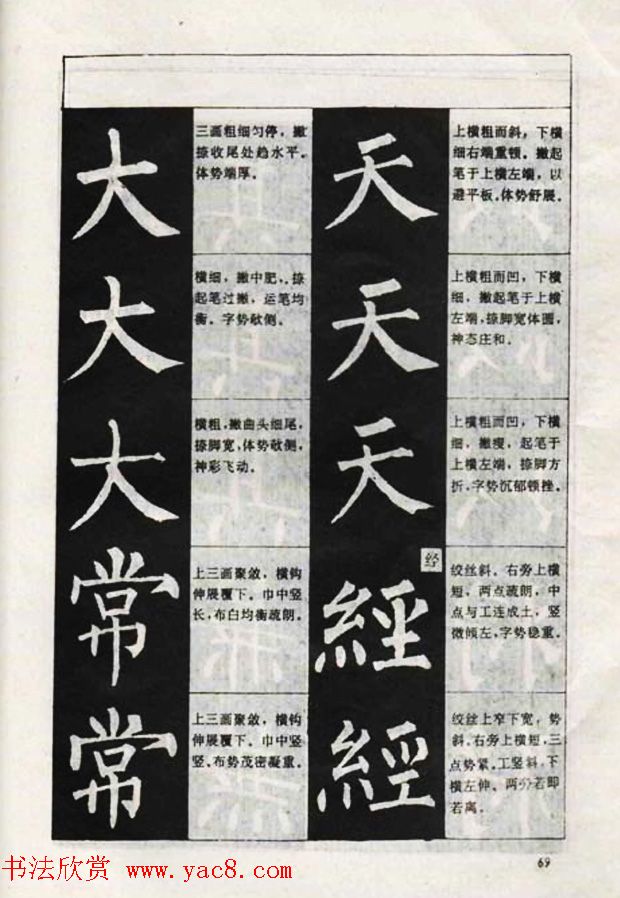 大
三画粗细匀停，撇
捺收尾处趋水平。
体势端厚。
大
横细，撇中肥，捺
起笔过撇，运笔均
衡。字势欹侧。
大
横粗，撇曲头细尾，
捺脚宽，体势欹侧，
神彩飞动。
常
上三画聚敛，横钩
伸展覆下。巾中竖
长，布白均衡疏朗。
常
上三画聚敛，横钩
伸展覆下。巾中竖
竖、布势茂密凝重。
天
上横粗而斜，下横
细右端重顿。撇起
笔于上横左端，以
避平板。体势舒展。
天
上横粗而凹，下横
细，撇起笔于上横
左端，捺脚宽体圆，
神态庄和。
天
上横粗而凹，下横
细，撇瘦，起笔于
上横左端，捺脚方
折，字势沉郁顿挫。
经
經
绞丝斜。右旁上横
短，两点疏朗，中
点与工连成土，竖
微倾左，字势稳重。
經
绞丝上窄下宽，势
斜。右旁上横短，三
点势紧。工竖斜，下
横左伸。两分若即
若离。
书法欣赏 www.yac8.com
69